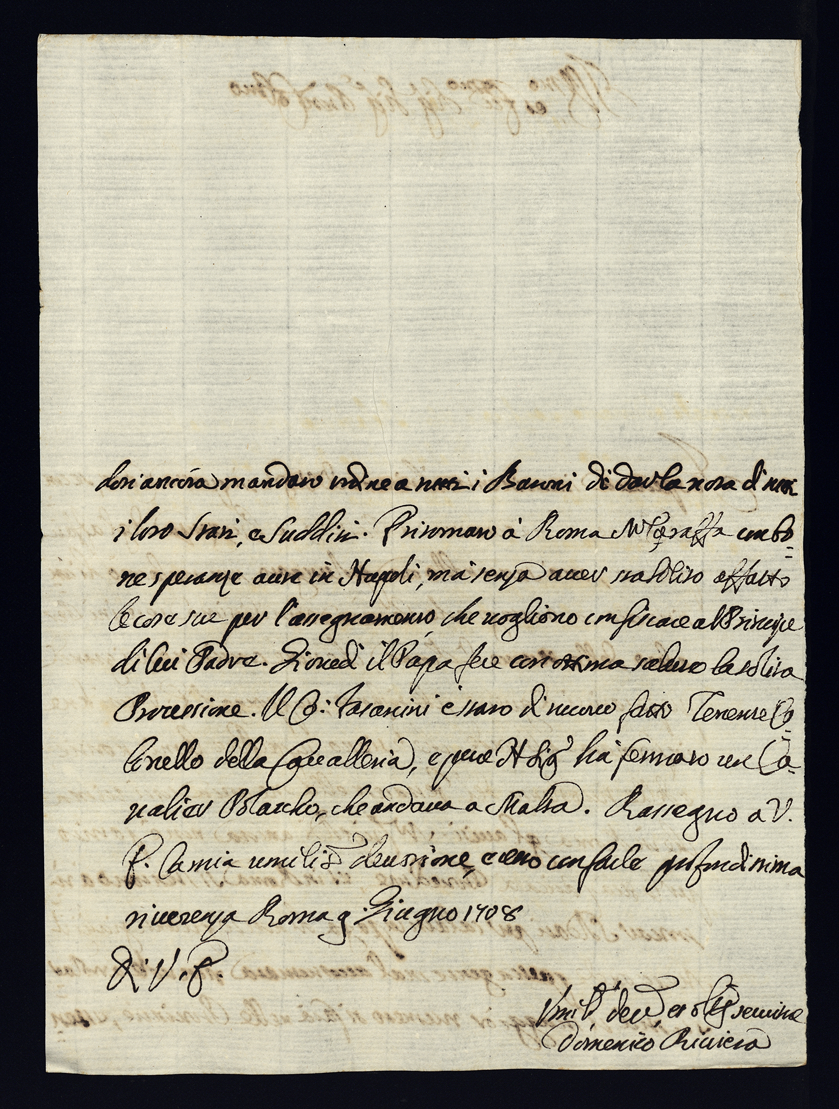 dori ancóra mandaro ordine a tutti i Baroni di dar la nota di tutti
i loro Stati, e Sudditi. Ritornato à Roma M. Caraffa con bo=
ne speranze avute in Napoli, mà senza aver stabilito affatto
le cose sue per l'assegnamento che vogliono confiscare al Principe
di lui Padre. Giovedì il Pápa fece con ottima salute la solita
Processione. Il C: Tasanini è stato di nuovo fatto Tenente Co=
lonello della Cavalleria, e pure N. Sigre hà fermato un Ca=
valier Polacho, che andava a Malta. Rassegno a V.
P. la mia umilis.a devozione, e resto con farle profondissima
riverenza Roma 9 Giugno 1708
Di V. P.
Umil.o dev.o et obl.o servitore
Domenico Riviera